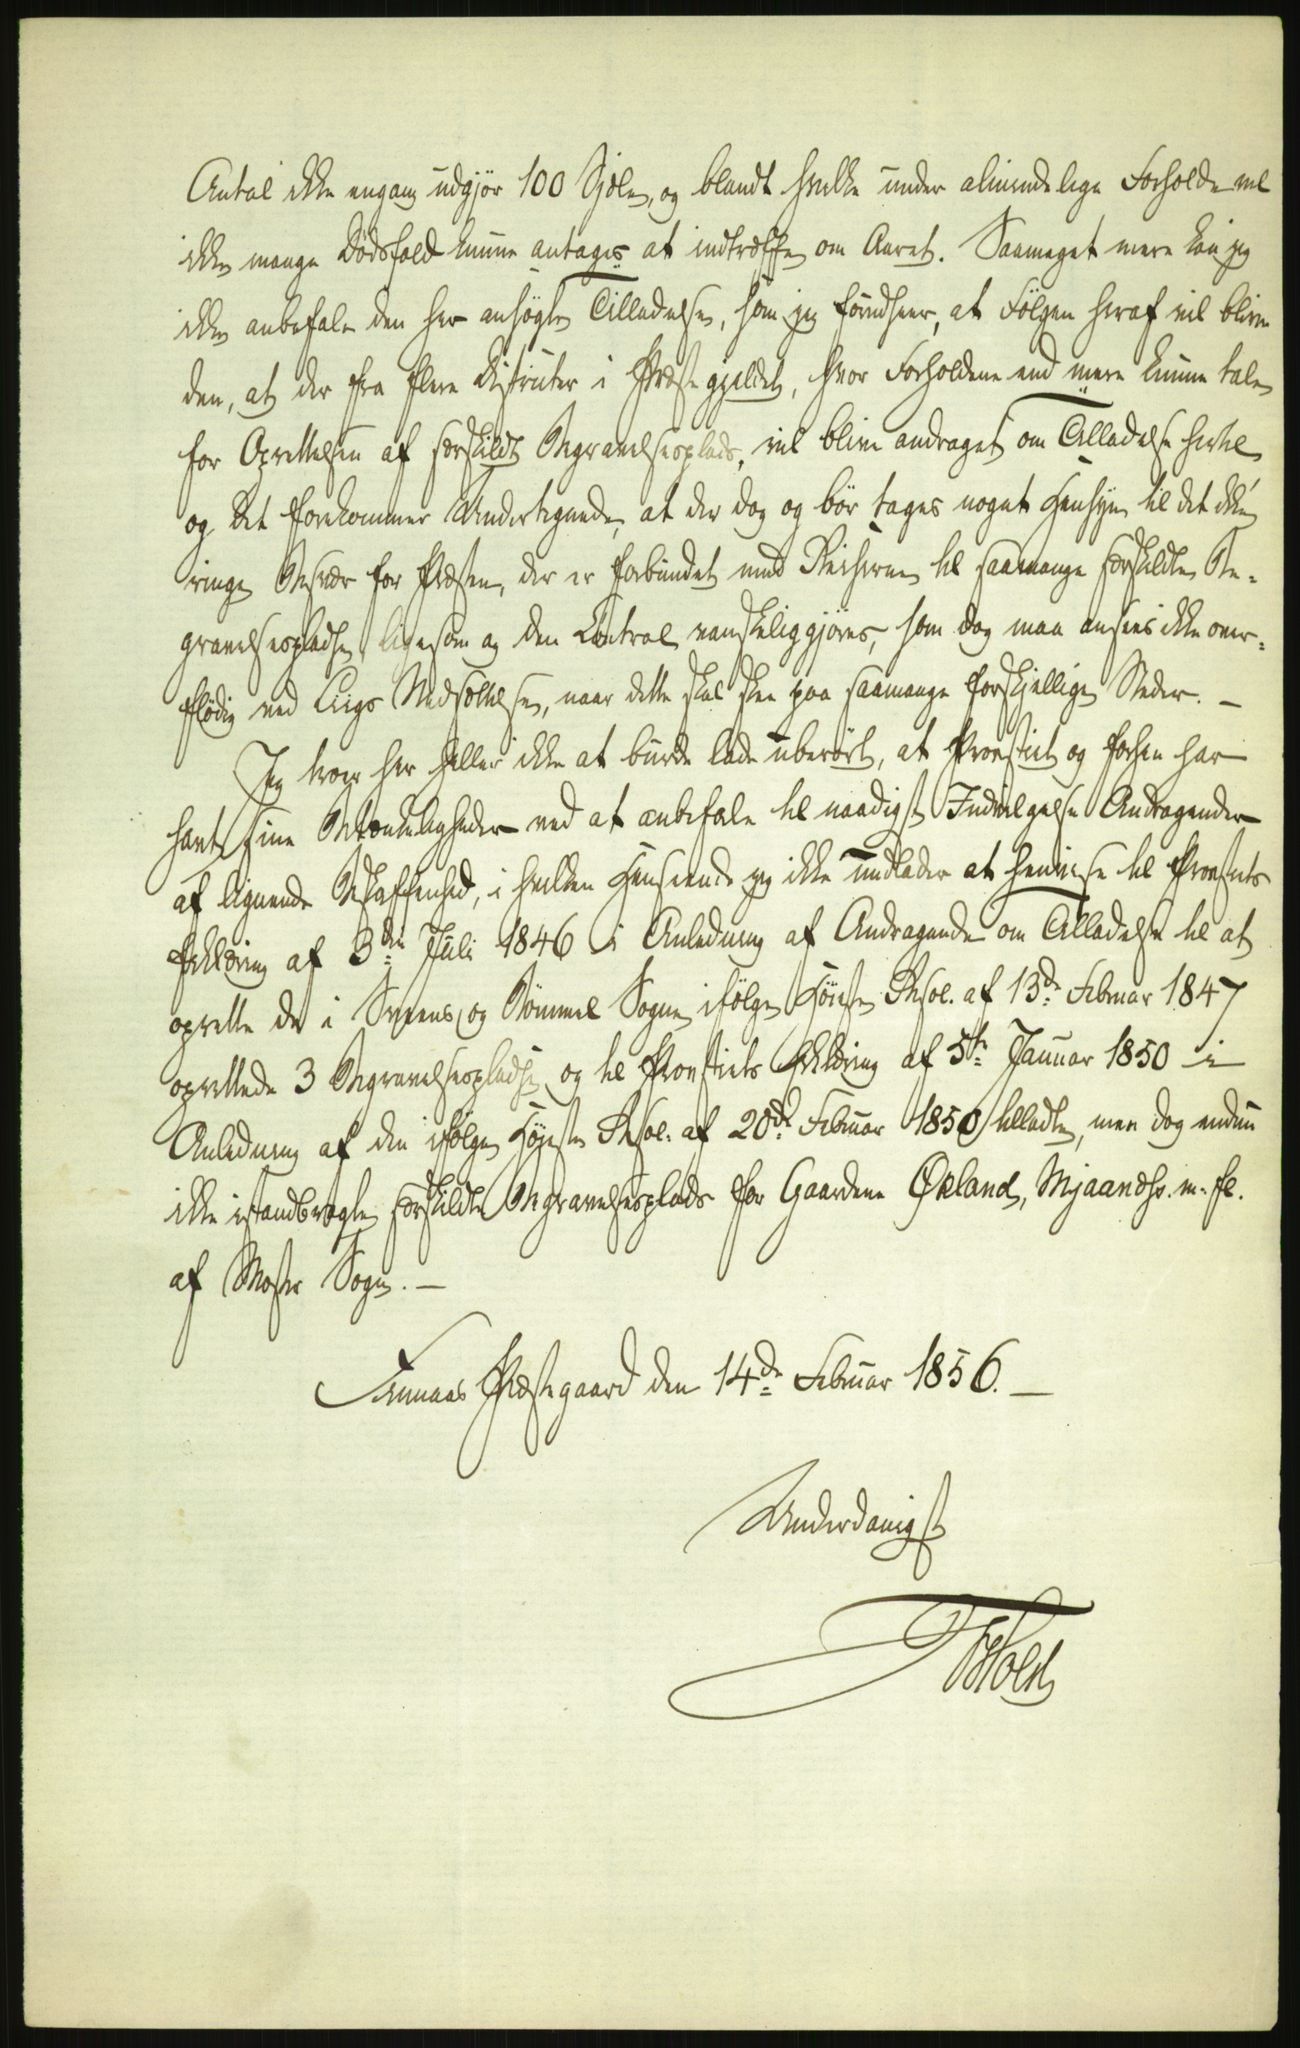 Antal ikke engang udgjör 100 Sjæle, og blandt hvilke under almindelige Forholde vel
ikke mange Dödsfald kunne antages at indtræffe om Aaret. Saameget mere kan jeg
ikke anbefale den her ansögte Tilladelse, som jeg forudseer, at Fölgen heraf vil blive
den, at der fra flere Districter i Præstegjeldet, hvor Forholdene end mere kunne tale
for Oprettelsen af særskildt Begravelsesplads, vil blive andraget om Tilladelse hertil,
og det forekommer Undertegnede, at der dog og bör tages noget Hensyn til det ikke
ringe Besvær for Præsten, der er forbundet med Reiserne til saamange særskildte Be-
gravelsespladse, ligesom og den Control vanskeliggjöres, som dog maa ansees ikke over-
flödig ved Liigs Nedsættelse, naar dette skal skee paa saamange forskjellige Steder. –
Jeg troer her heller ikke at burde lade uberört, at Provstiet og forhen har
havt sine Betænkeligheder ved at anbefale til naadigst Indvilgelse Andragender
af lignende Beskaffenhed, i hvilken Henseende jeg ikke undlader at henvise til Provstiets
Erklæring af 3die Juli 1846 i Anledning af Andragende om Tilladelse til at
oprette de i Sveens og Bömmel Sogne ifölge Höieste Resol. af 13de Februar 1847
oprettede 3 Begravelsespladse, og til Provstiets Erklæring af 5te Januar 1850 i
Anledning af den ifölge Höieste Resol. af 20de Februar 1850 tilladte, men dog endnu
ikke istandbragte særskildte Begravelsesplads for Gaardene Økland, Mjaanæs m. fl.
af Moster Sogn. –
Finnaas Præstegaard den 14de Februar 1856. –
Underdanigst
Holst